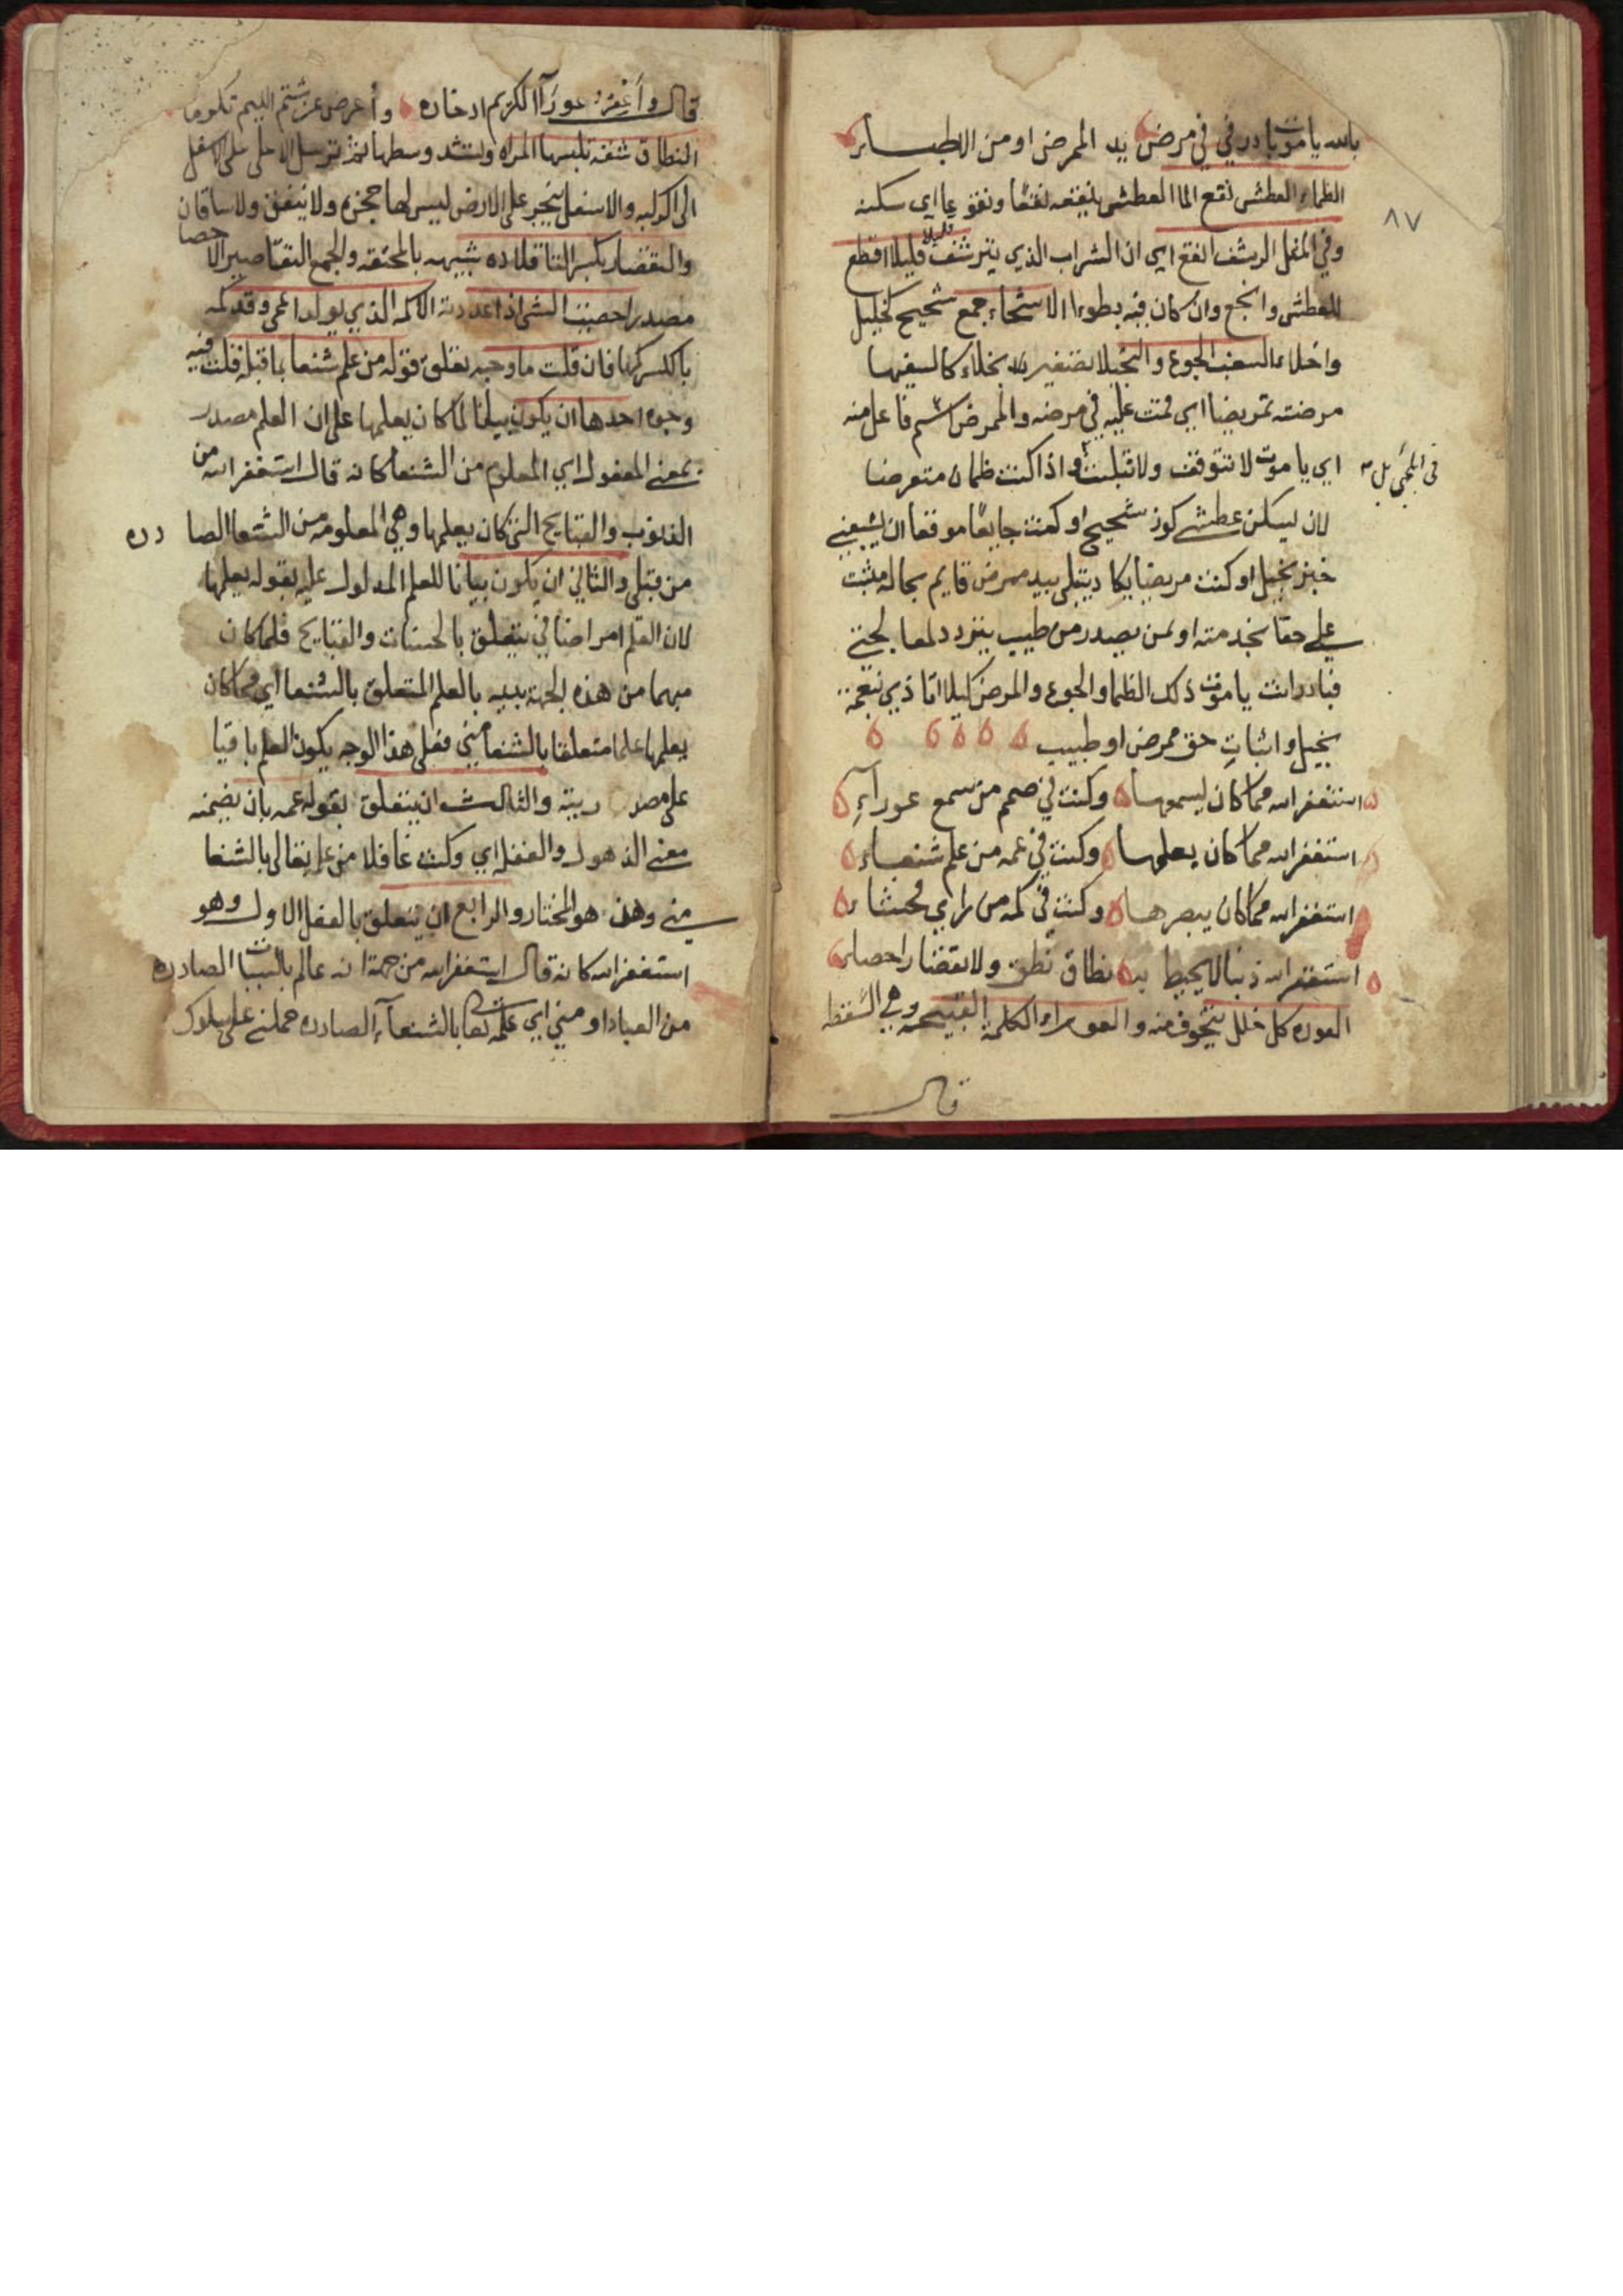 بالله يا موت بادرني في مرض يد الممرض او من الاطباء
الظماء العطش نقع الما العطش ينقعه نقعا ونقوعا اي سكنه
٨٧
وفي المثل الرشف انقع اي ان الشراب الذي يترشف قليلا قليلا اقطع
للعطش وانجع وان كان فيه بطوء الاشحاء جمع شحيح كخليل
واخلاء السغب الجوع والبخيلا تصغير بخلاء كالسفيها
مرضته تمريضا اي قمت عليه في مرضه والممرض اسم فاعل منه
اي يا موت لا تتوقف ولا تلبث واذا كنت ظمان متعرضا
في المجئ بل
لان يسكن عطشي كوز شحيح او كنت جايعا موقعا ان يشبعني
خبز بخيل او كنت مريضا يكاد يبتلى بيد ممرض قايم بحاله مثبت
علي حقا بخدمته او لمن يصدر من طبيب يتردد لمعالجتي
فبادر انت يا موت ذلك الظما والجوع والمرض كيلا اتاذي بنعمة
بخيل واثبات حق ممرض او طبيب
استغفر الله مما كان يسمعها وكنت في صمم من سمع عوراء
استغفر الله مما كان يعلمها وكنت في عمه من علم شنعاء
استغفر الله مما كان يبصرها وكنت في كمه من راي فحشاء
استغفر الله ذنبا لا يحيط به نطاق نطق ولا تقصار احصاء
العوره كل خلل يتخوف منه والعوراء الكلمة القبيحه وهي السقطه
قال
قال واغفر عوراء الكريم ادخاره واعرض عن شتم اللئيم تكرما
النطاق شقه تلبسها المراه وتشد وسطها ثم ترسل الاعلى على الاسفل
الى الركبه والاسفل ينجر على الارض ليس لها حجزه ولا نيفق ولا ساقان
والتقصار بكسر التا قلاده شبيهه بالمخنقه والجمع التقاصير الاحصا
مصدر احصيت الشي اذا عددته الاكمه الذي يولد اعمى وقد كمه
بالكسر كمها فان قلت ما وجه تعلق قوله من علم شنعا بما قبله قلت فيه
وجوه احدها ان يكون بيانا لما كان يعلمها على ان العلم مصدر
بمعنى المفعول اي المعلوم من الشنعا كانه قال استغفر الله من
الذنوب والقبايح التي كان يعلمها وهي المعلومه من الشنعا الصادره
من قبلي والثاني ان يكون بيانا للعلم المدلول عليه بقوله يعلمها
لان العلم امر اضافي يتعلق بالحسنات والقبايح فلما كان
مبهما من هذه الجهة بينه بالعلم المتعلق بالشنعا اي مما كان
يعلمها علما متعلقا بالشنعا مني فعلى هذا الوجه يكون العلم باقيا
على مصدريته والثالث ان يتعلق بقوله عمه بان يضمنه
معنى الذهول والغفل اي وكنت غافلا من علمه تعالى بالشنعا
مني وهذا هو المختار والرابع ان يتعلق بالفعل الاول وهو
استغفر الله كانه قال استغفر الله من جهة انه عالم بالسيئات الصادره
من العباد او مني اي علمه تعالى بالشنعاء الصادره حملني على سلوك